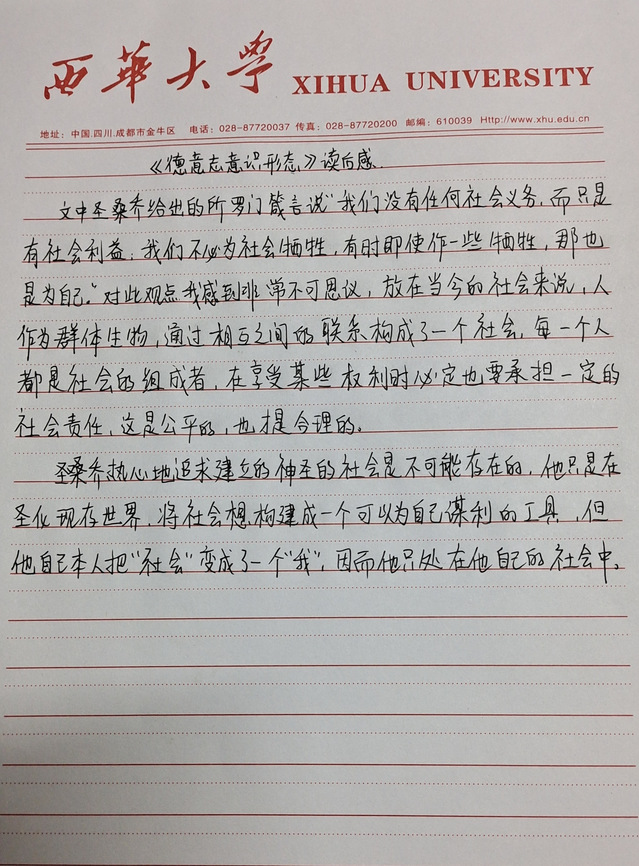 西華大學 XIHUA UNIVERSITY
地址：中国.四川.成都市金牛区 电话：028-87720037 传真：028-87720200 邮编：610039 Http://www.xhu.edu.cn
《德意志意识形态》读后感
文中圣桑乔给出的所罗门箴言说"我们没有任何社会义务，而只是
有社会利益；我们不必为社会牺牲，有时即使作一些牺牲，那也
是为自己。"对此观点我感到非常不可思议，放在当今的社会来说，人
作为群体生物，通过相互之间的联系构成了一个社会，每一个人
都是社会的组成者，在享受某些权利时必定也要承担一定的
社会责任，这是公平的，也才是合理的。
圣桑乔热心地追求建立的神圣的社会是不可能存在的，他只是在
圣化现存世界，将社会想构建成一个可以为自己谋利的工具，但
他自己本人把"社会"变成了一个"我"，因而他只处在他自己的社会中。